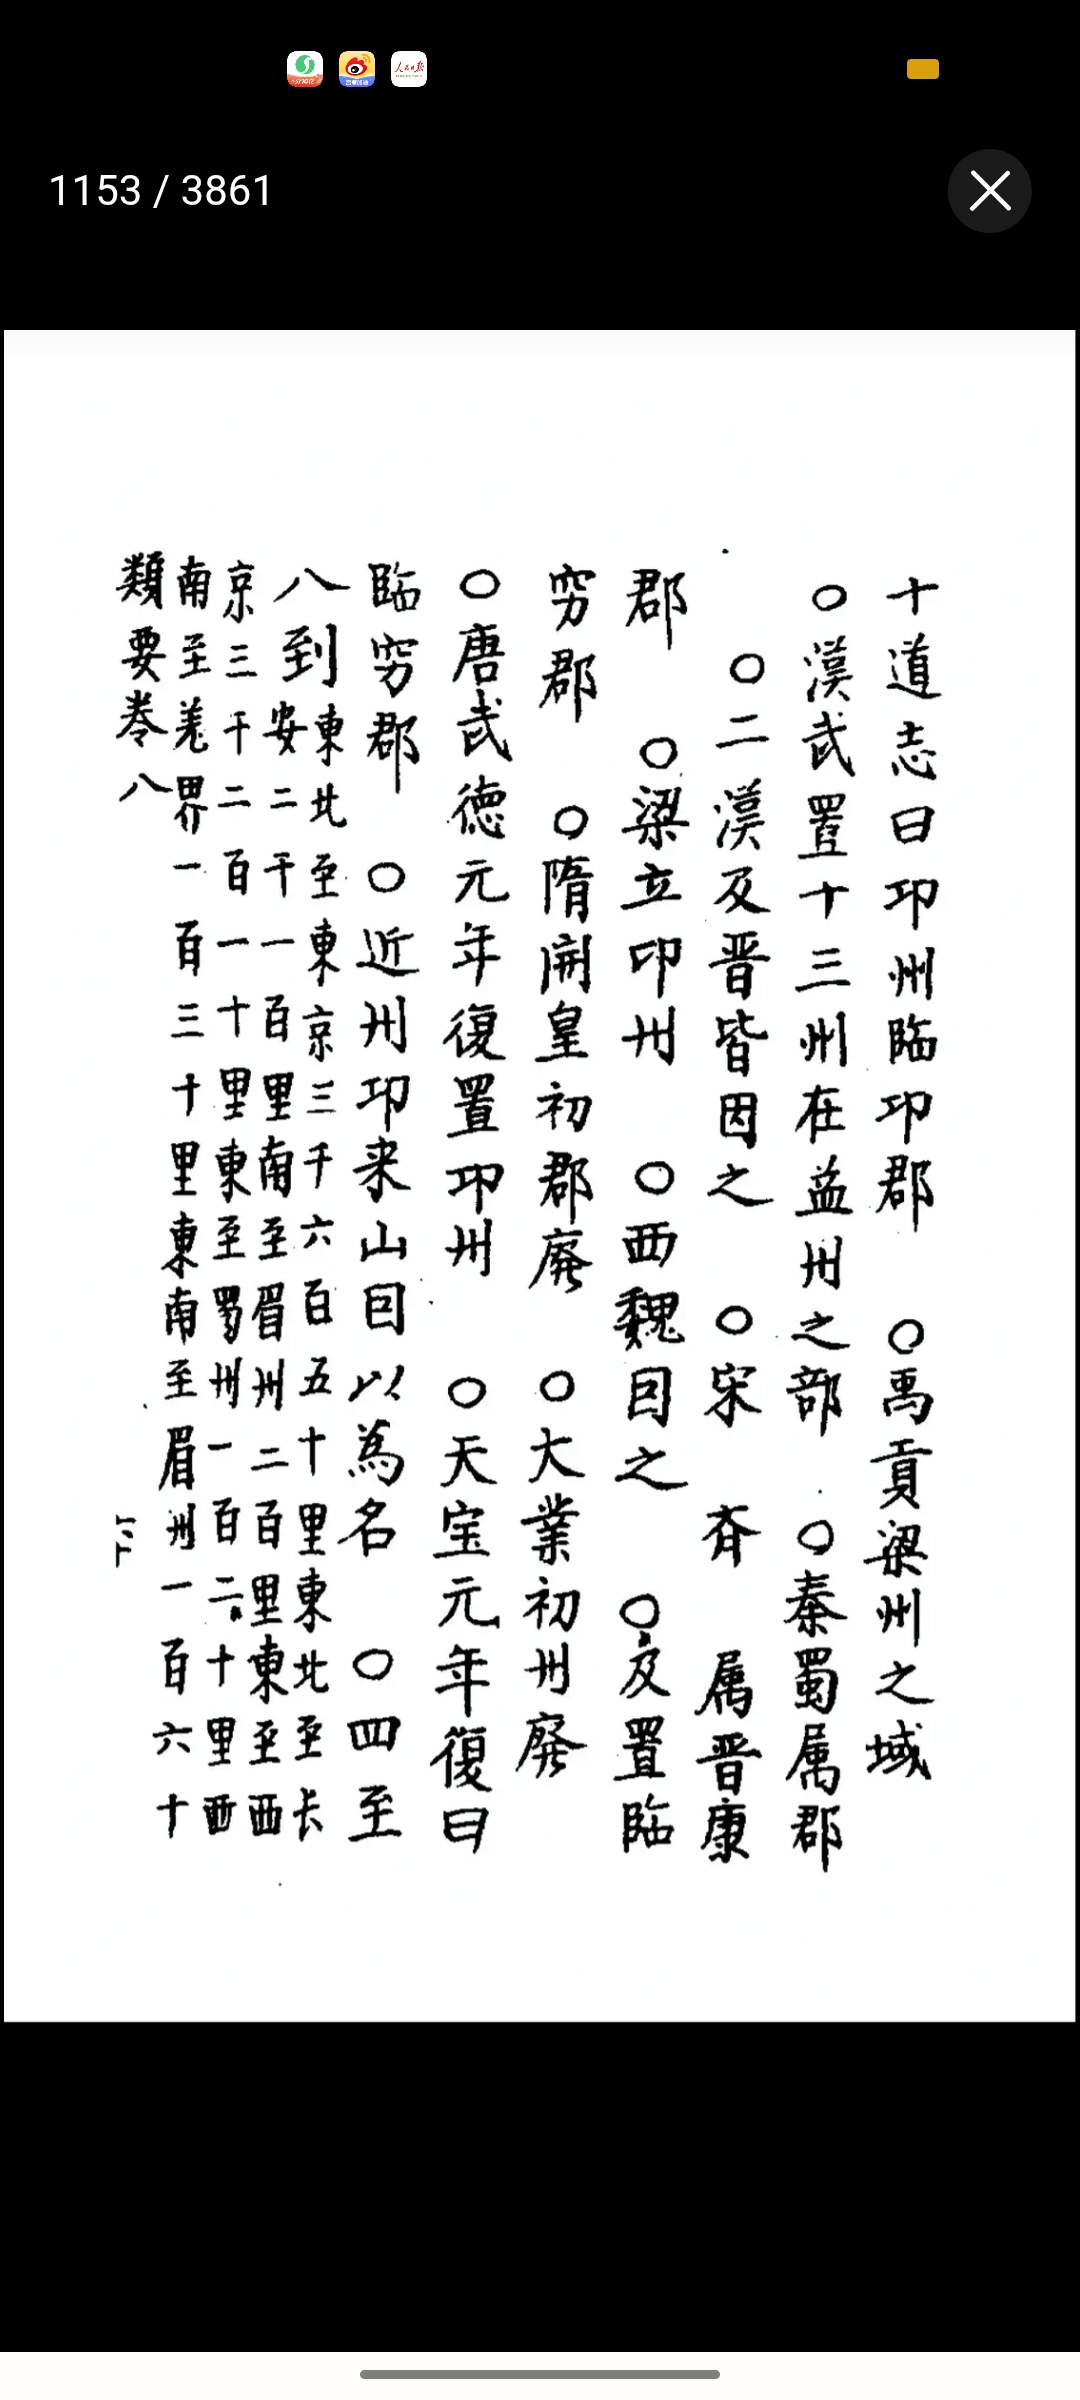 1153 / 3861
十道志曰卭州臨卭郡 〇禹貢梁州之域
〇漢武置十三州在益州之部 〇秦蜀属郡
〇二漢及晋皆因之 〇宋 斉 属晋康
郡 〇梁立卭州 〇西魏因之 〇及置臨
穷郡 〇隋開皇初郡廃 〇大業初州廃
〇唐武德元年復置卭州 〇天宝元年復曰
臨穷郡 〇近州卭来山因以為名 〇四至
八到東北至東京三千六百五十里東北至长
安二千一百里南至眉州二百里東至西
京三千二百一十里東至蜀州一百二十里西
南至羗界一百三十里東南至眉州一百六十
類要卷八